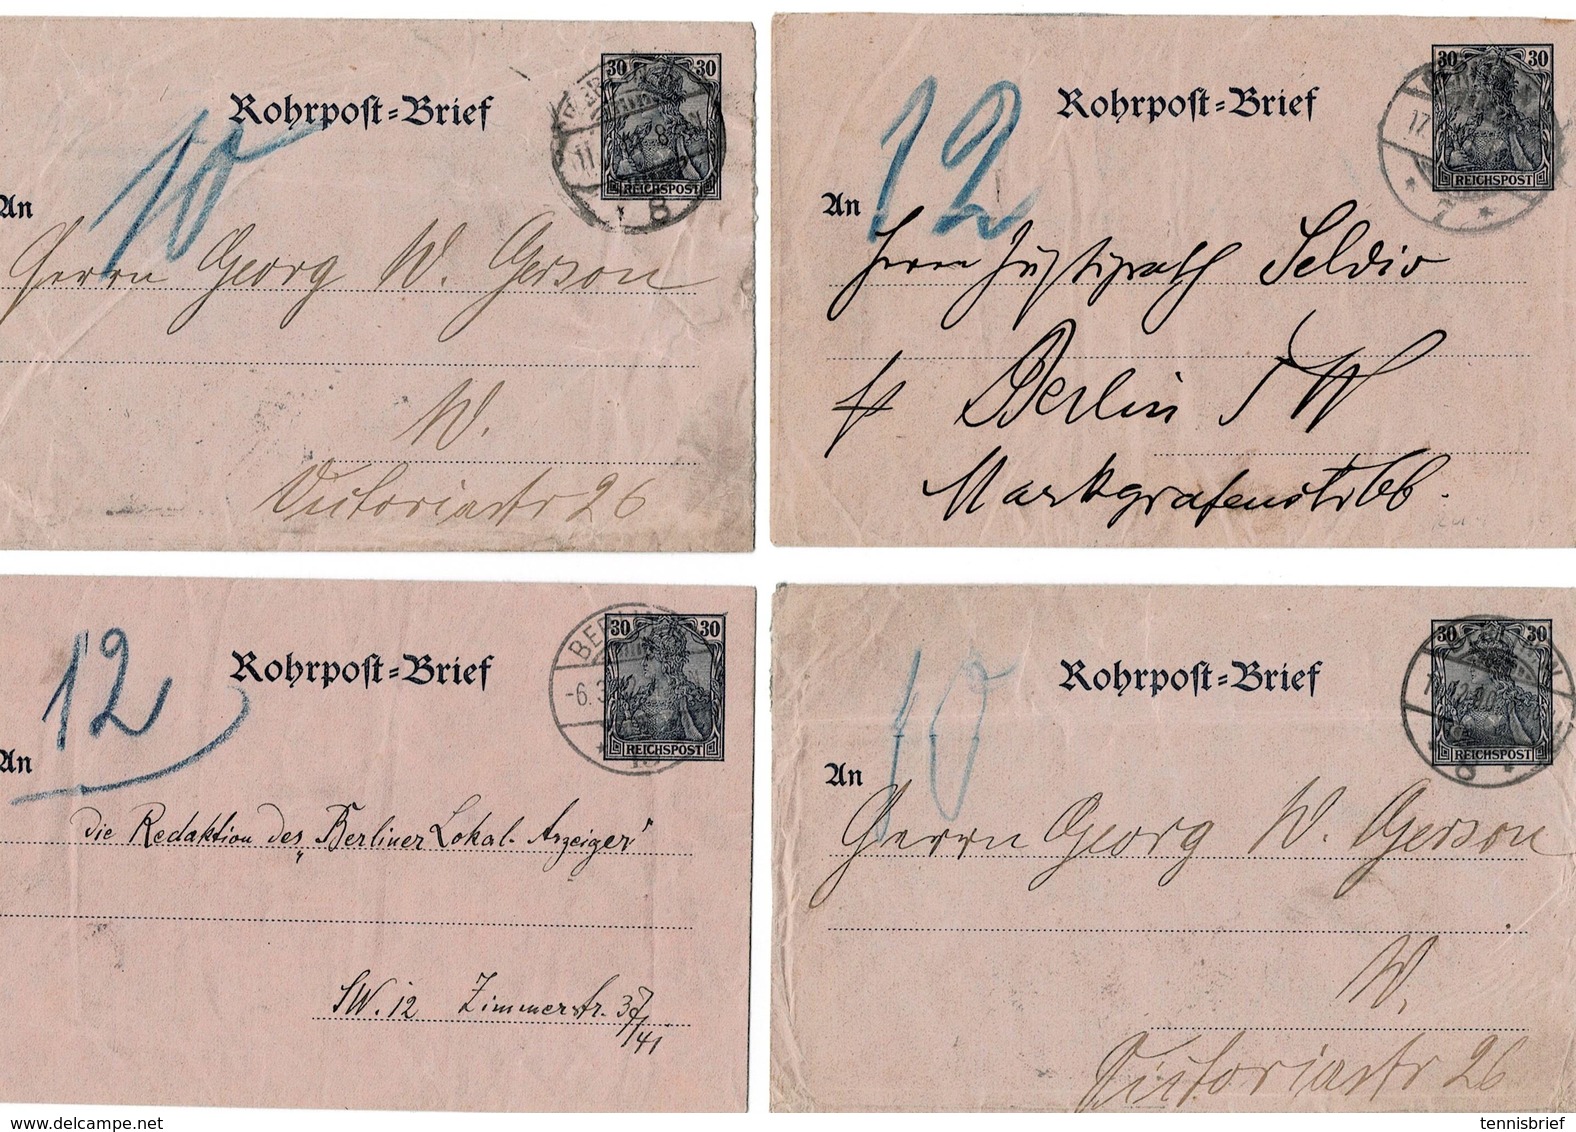 Rohrpost=Brief
30 30
REICHSPOST
BERLIN
8
10
An
Herrn Georg W. Gerson
W.
Victoriastr 26
Rohrpost=Brief
30 30
REICHSPOST
17.
7
12
An
Herrn Justizrath
Berlin SW
Markgrafenstr 66.
Rohrpost=Brief
30 30
REICHSPOST
BERLIN
-6.3
12
An
die Redaktion des „Berliner Lokal-Anzeiger"
SW. 12 Zimmerstr. 37/41
Rohrpost=Brief
30 30
REICHSPOST
8
10
An
Herrn Georg W. Gerson
W.
Victoriastr 26
delcampe.net
tennisbrief